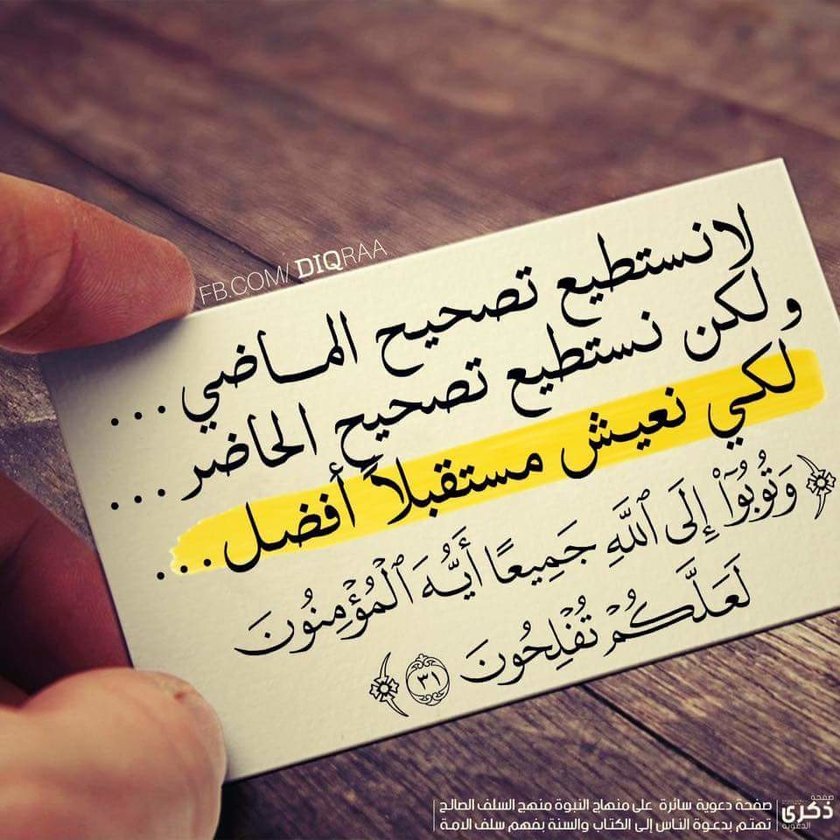 FB.COM/ DIQRAA
لانستطيع تصحيح الماضي ...
ولكن نستطيع تصحيح الحاضر ...
لكي نعيش مستقبلاً أفضل ...
﴿ وَتُوبُوٓا۟ إِلَى ٱللَّهِ جَمِيعًا أَيُّهَ ٱلْمُؤْمِنُونَ
لَعَلَّكُمْ تُفْلِحُونَ ٣١ ﴾
صفحة
ذكرى
الدعوية
صفحة دعوية سائرة على منهاج النبوة منهج السلف الصالح
تهتم بدعوة الناس إلى الكتاب والسنة بفهم سلف الامة